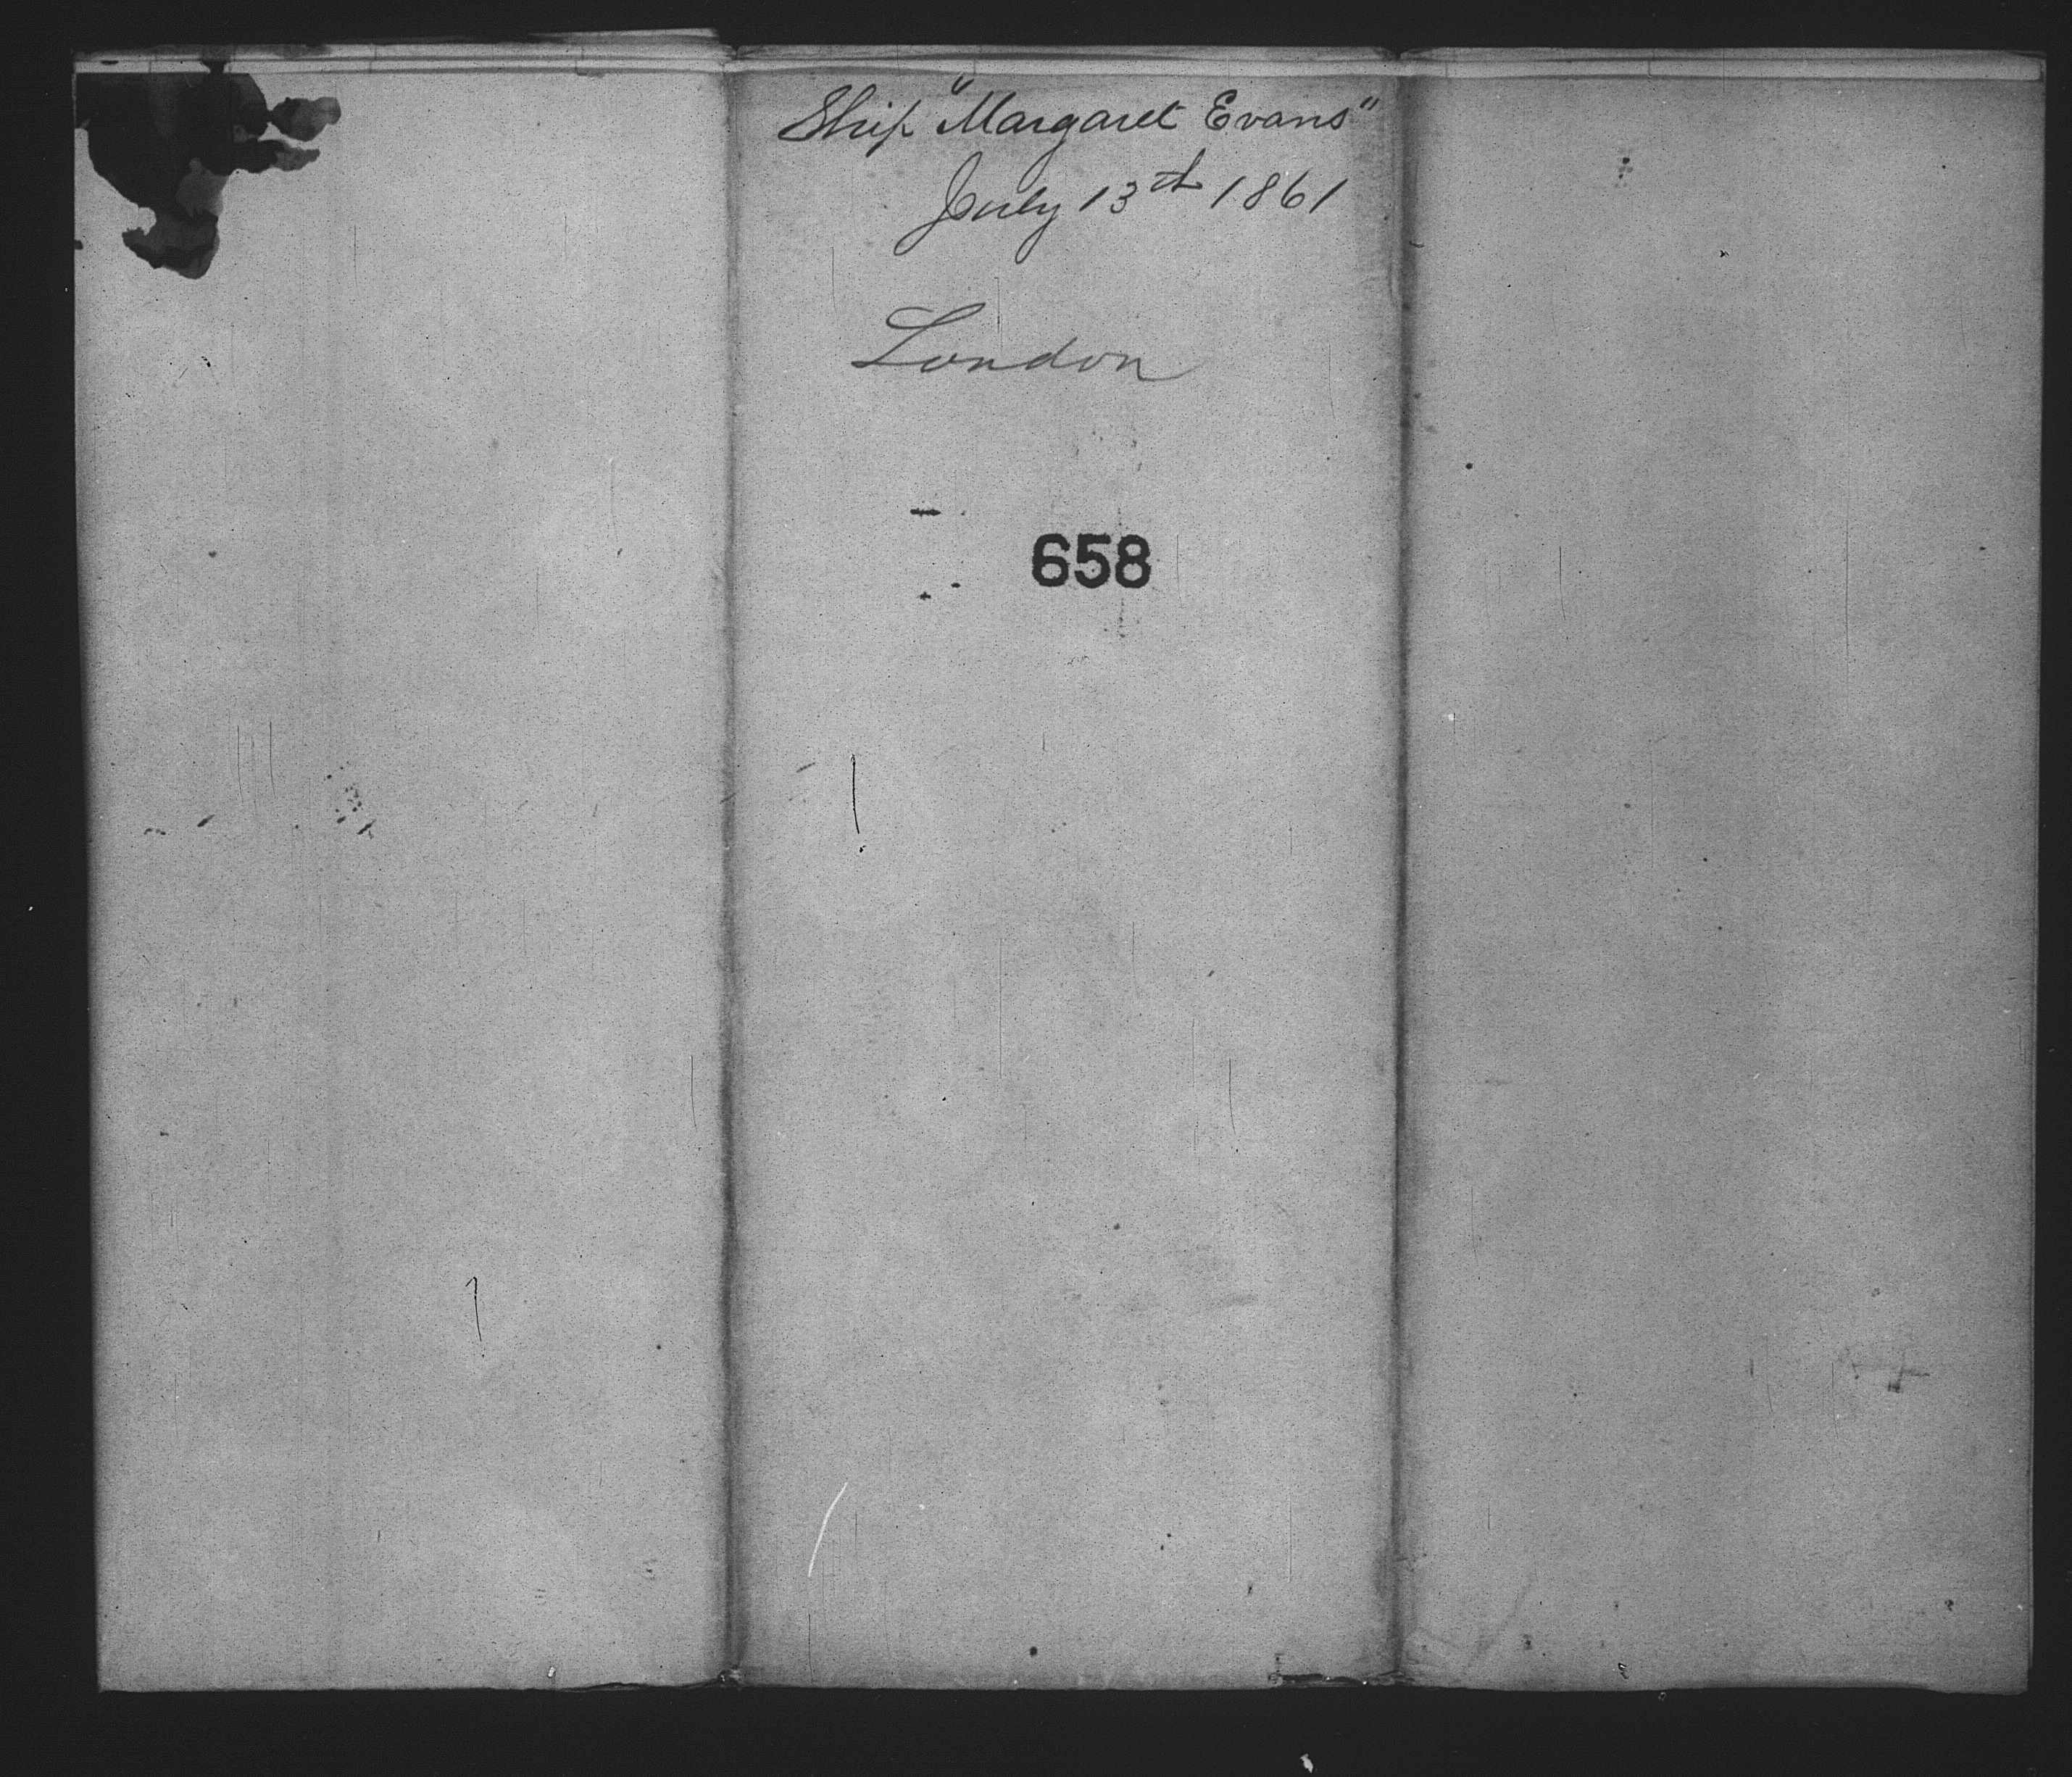 Ship "Margaret Evans"
July 13th 1861
London
658